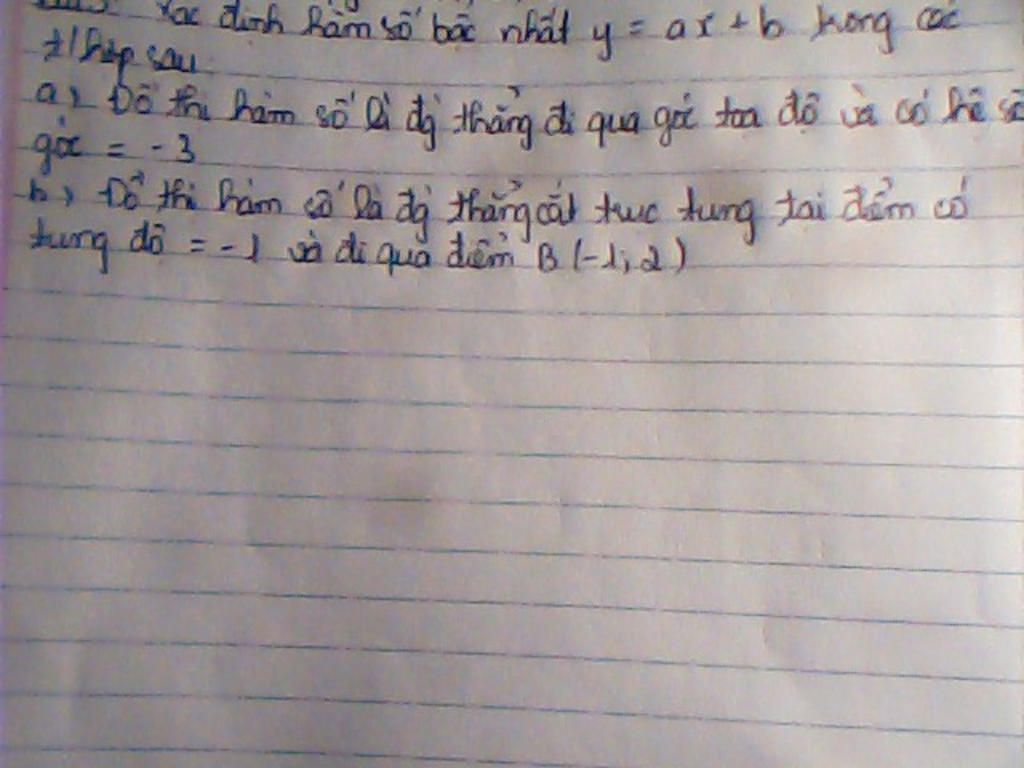 Xác định hàm số bậc nhất y = ax + b trong các
t/hợp sau
a, Đồ thị hàm số là đg thẳng đi qua gốc toạ độ và có hệ số
góc = -3
b, Đồ thị hàm số là đg thẳng cắt trục tung tại điểm có
tung độ = -1 và đi qua điểm B (-1; 2)